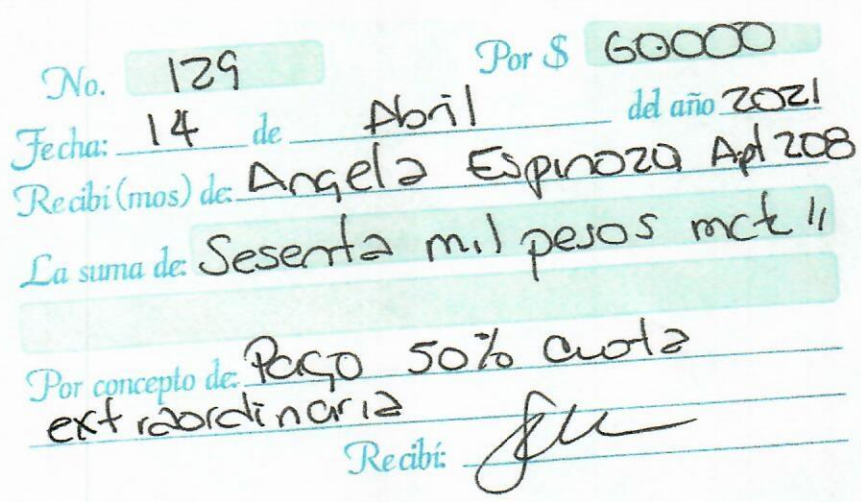 No. 129 Por $ 60000
Fecha: 14 de Abril del año 2021
Recibí(mos) de: Angela Espinoza Apt 208
La suma de: Sesenta mil pesos mct //
Por concepto de: Pago 50% Cuota
extraordinaria
Recibí: